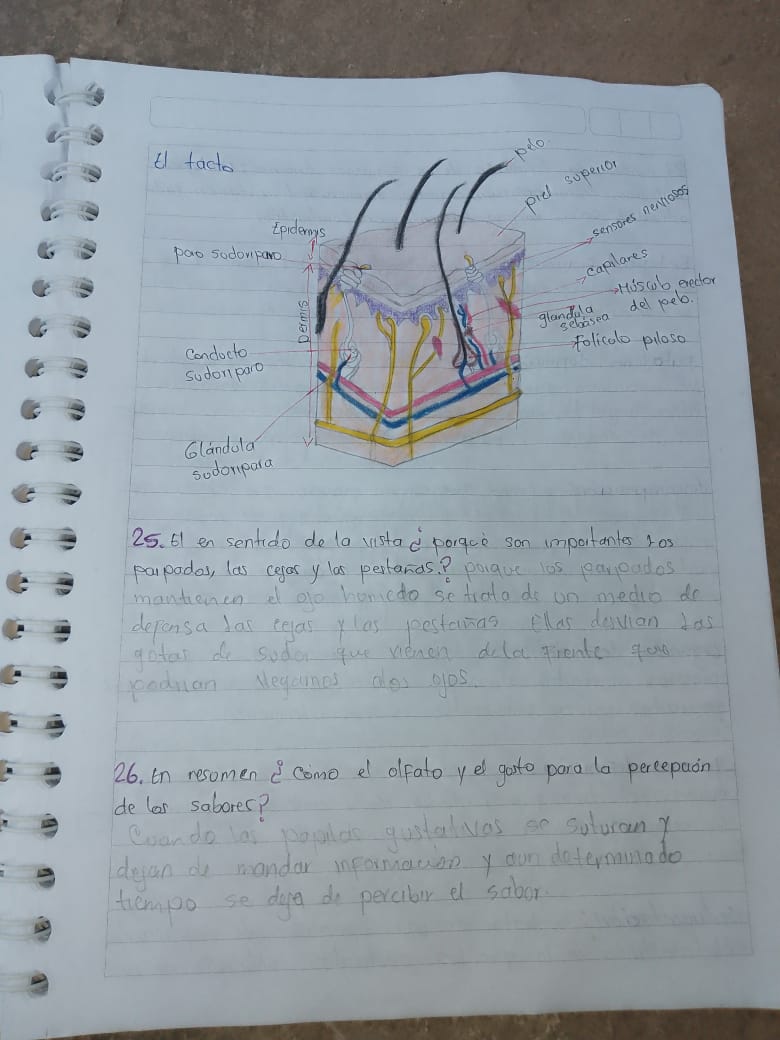 El tacto
pelo
piel superior
sensores nerviosos
Epidermis
poro sudoriparo
capilares
Músculo erector
del pelo.
glandula
sebásea
Dermis
Folicolo piloso
Conducto
sudoriparo
Glándula
sudoripara
25. El en sentido de la vista ¿ porqué son importantes los
parpados, las cejas y las pestañas? porque los parpados
mantienen el ojo humedo se trata de un medio de
defensa las cejas y las pestañas Ellas desvian las
gotas de sudor que vienen de la frente que
podrian llegarnos a los ojos.
26. En resumen ¿ cómo el olfato y el gusto para la percepción
de los sabores?
Cuando las papilas gustativas se suturan y
dejan de mandar información y aun determinado
tiempo se deja de percibir el sabor.